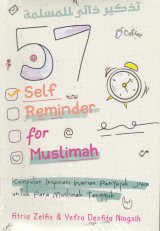 تذكير ذاتي للمسلمة
Coffee
57
Self
Reminder
for
Muslimah
Kumpulan Inspirasi Harian Penyejuk Jiwa
untuk Para Muslimah Tangguh
Fitria Zelfis & Yefra Desfita Ningsih